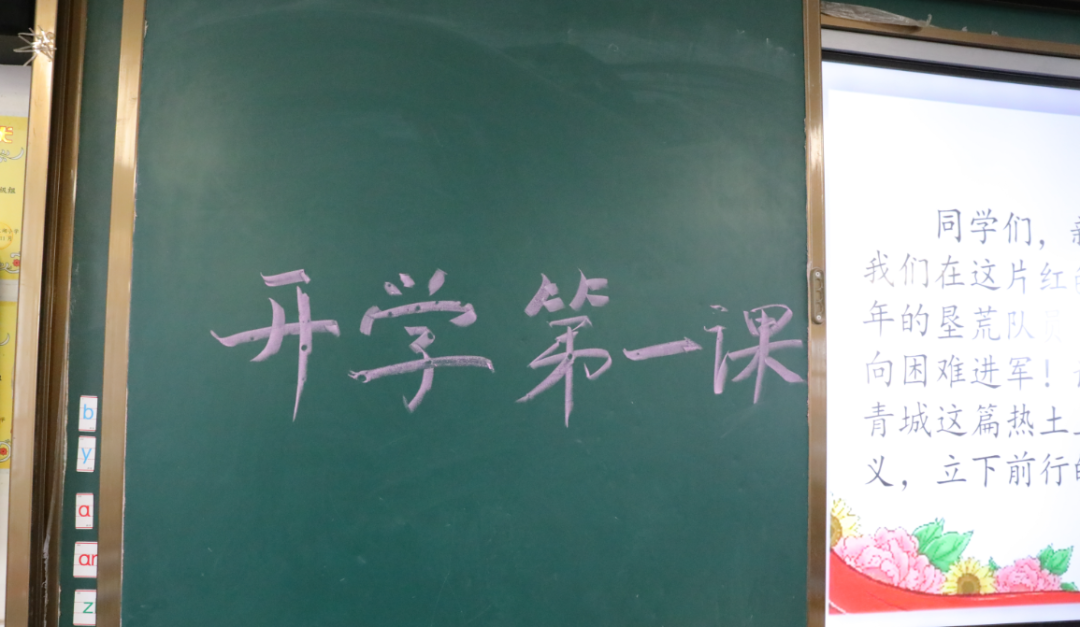 开学第一课
同学们，
我们在这片红
年的垦荒队员
向困难进军！
青城这篇热土
义，立下前行的
b
y
a
an
z